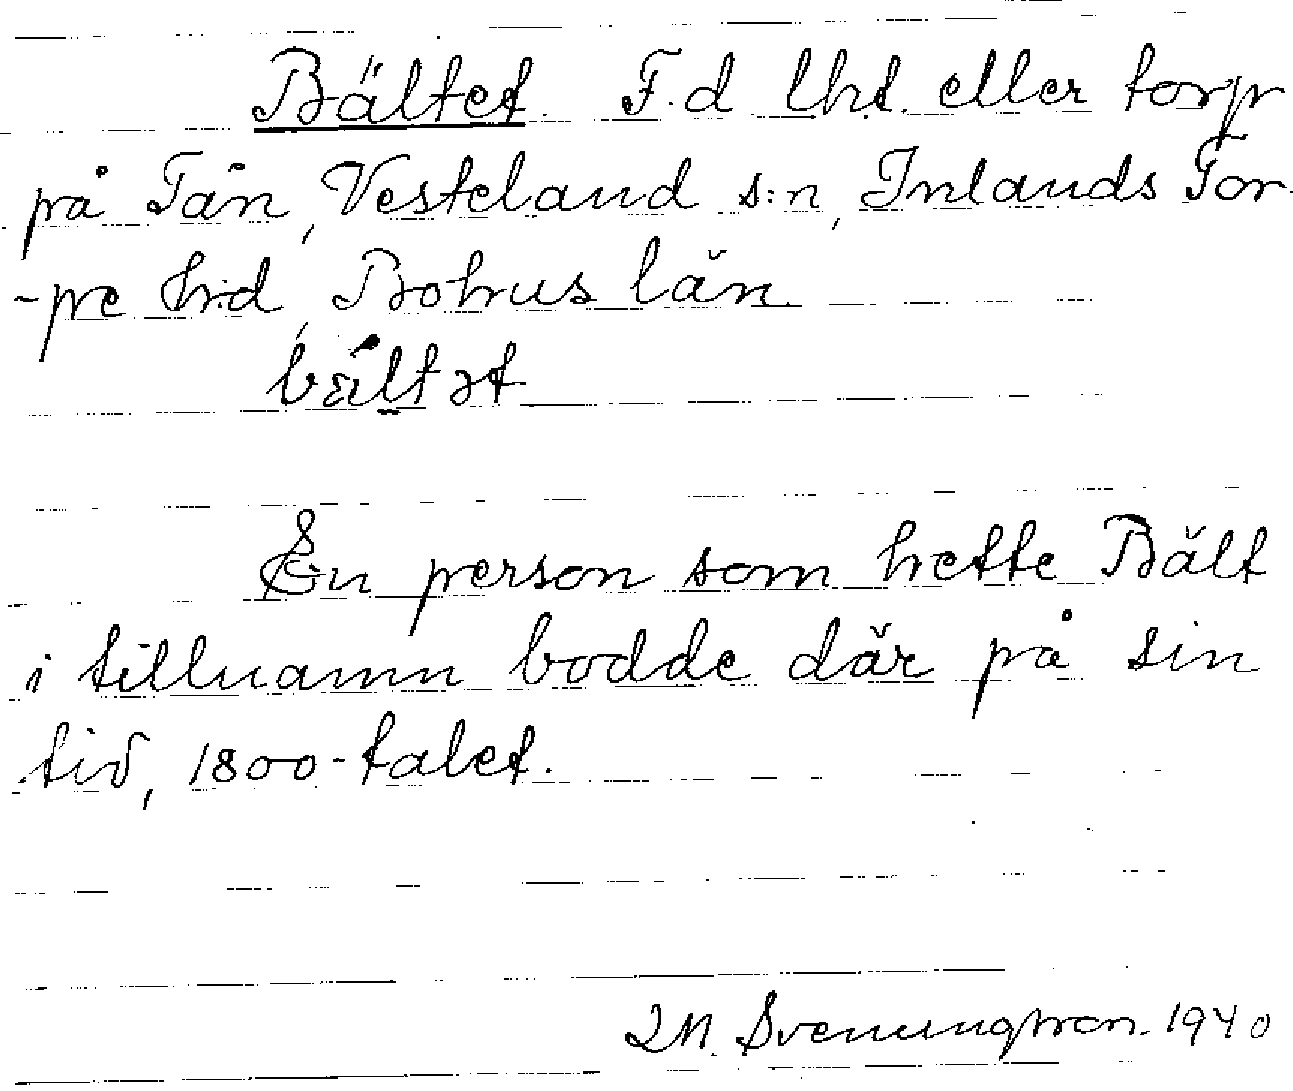 Bältet F.d lht. eller torp
på Tån, Vesteland s:n, Inlands Tor-
-pe hd, Bohus län
bältət
En person som hette Bält
i tillnamn bodde där på sin
tid, 1800-talet.
Svenungsson. 1940